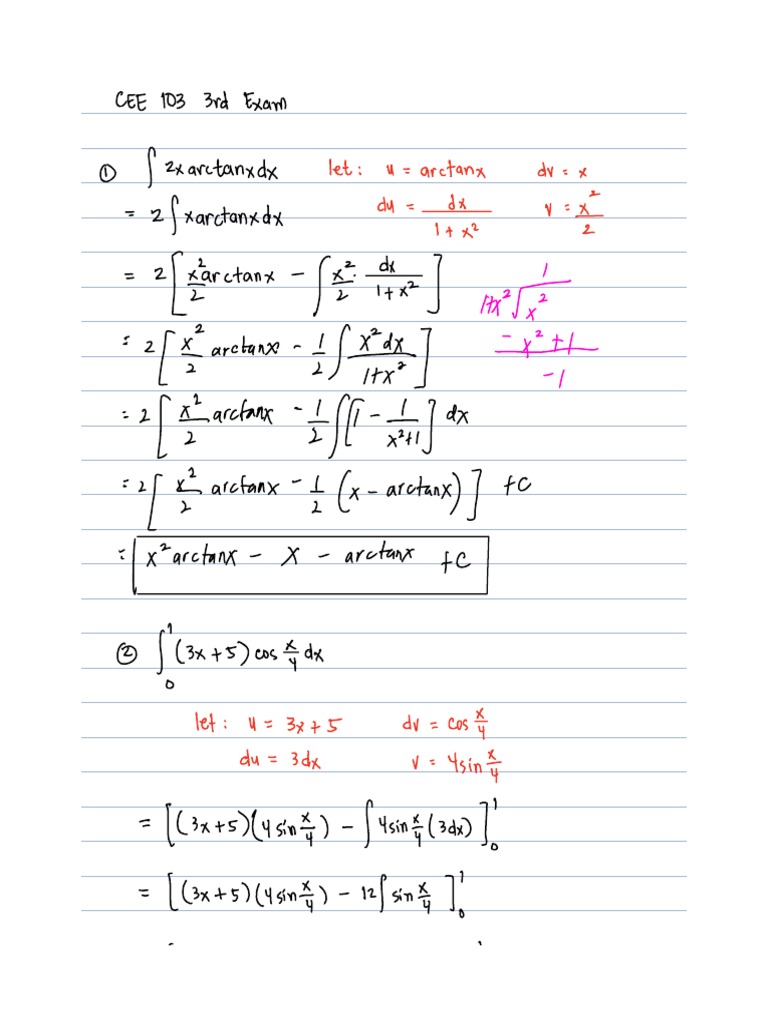 CEE 103 3rd Exam
① ∫ 2x arctanx dx let: u = arctanx dv = x
= 2 ∫ x arctanx dx du = dx/(1 + x²) v = x²/2
= 2 [ x²/2 arctanx − ∫ x²/2 · dx/(1 + x²) ] 1
1+x² √ x²
= 2 [ x²/2 arctanx − 1/2 ∫ x²dx/(1+x²) ] − x² + 1
−1
= 2 [ x²/2 arctanx − 1/2 ∫ [ 1 − 1/(x²+1) ] dx
= 2 [ x²/2 arctanx − 1/2 (x − arctanx) ] + C
= x² arctanx − x − arctanx + C
② ∫₀¹ (3x + 5) cos x/4 dx
let: u = 3x + 5 dv = cos x/4
du = 3dx v = 4sin x/4
= [ (3x + 5)(4sin x/4) − ∫ 4sin x/4 (3dx) ]₀¹
= [ (3x + 5)(4sin x/4) − 12 ∫ sin x/4 ]₀¹